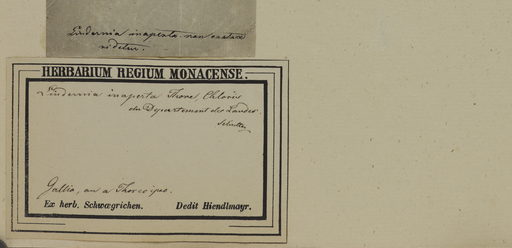 Lindernia inaperta non exstare
videtur.
HERBARIUM REGIUM MONACENSE.
Lindernia inaperta Thore, Chloris
du Département des Landes.
Gallia, an a Thoreo ipso.
Ex herb. Schwægrichen. Dedit Hiendlmayr.